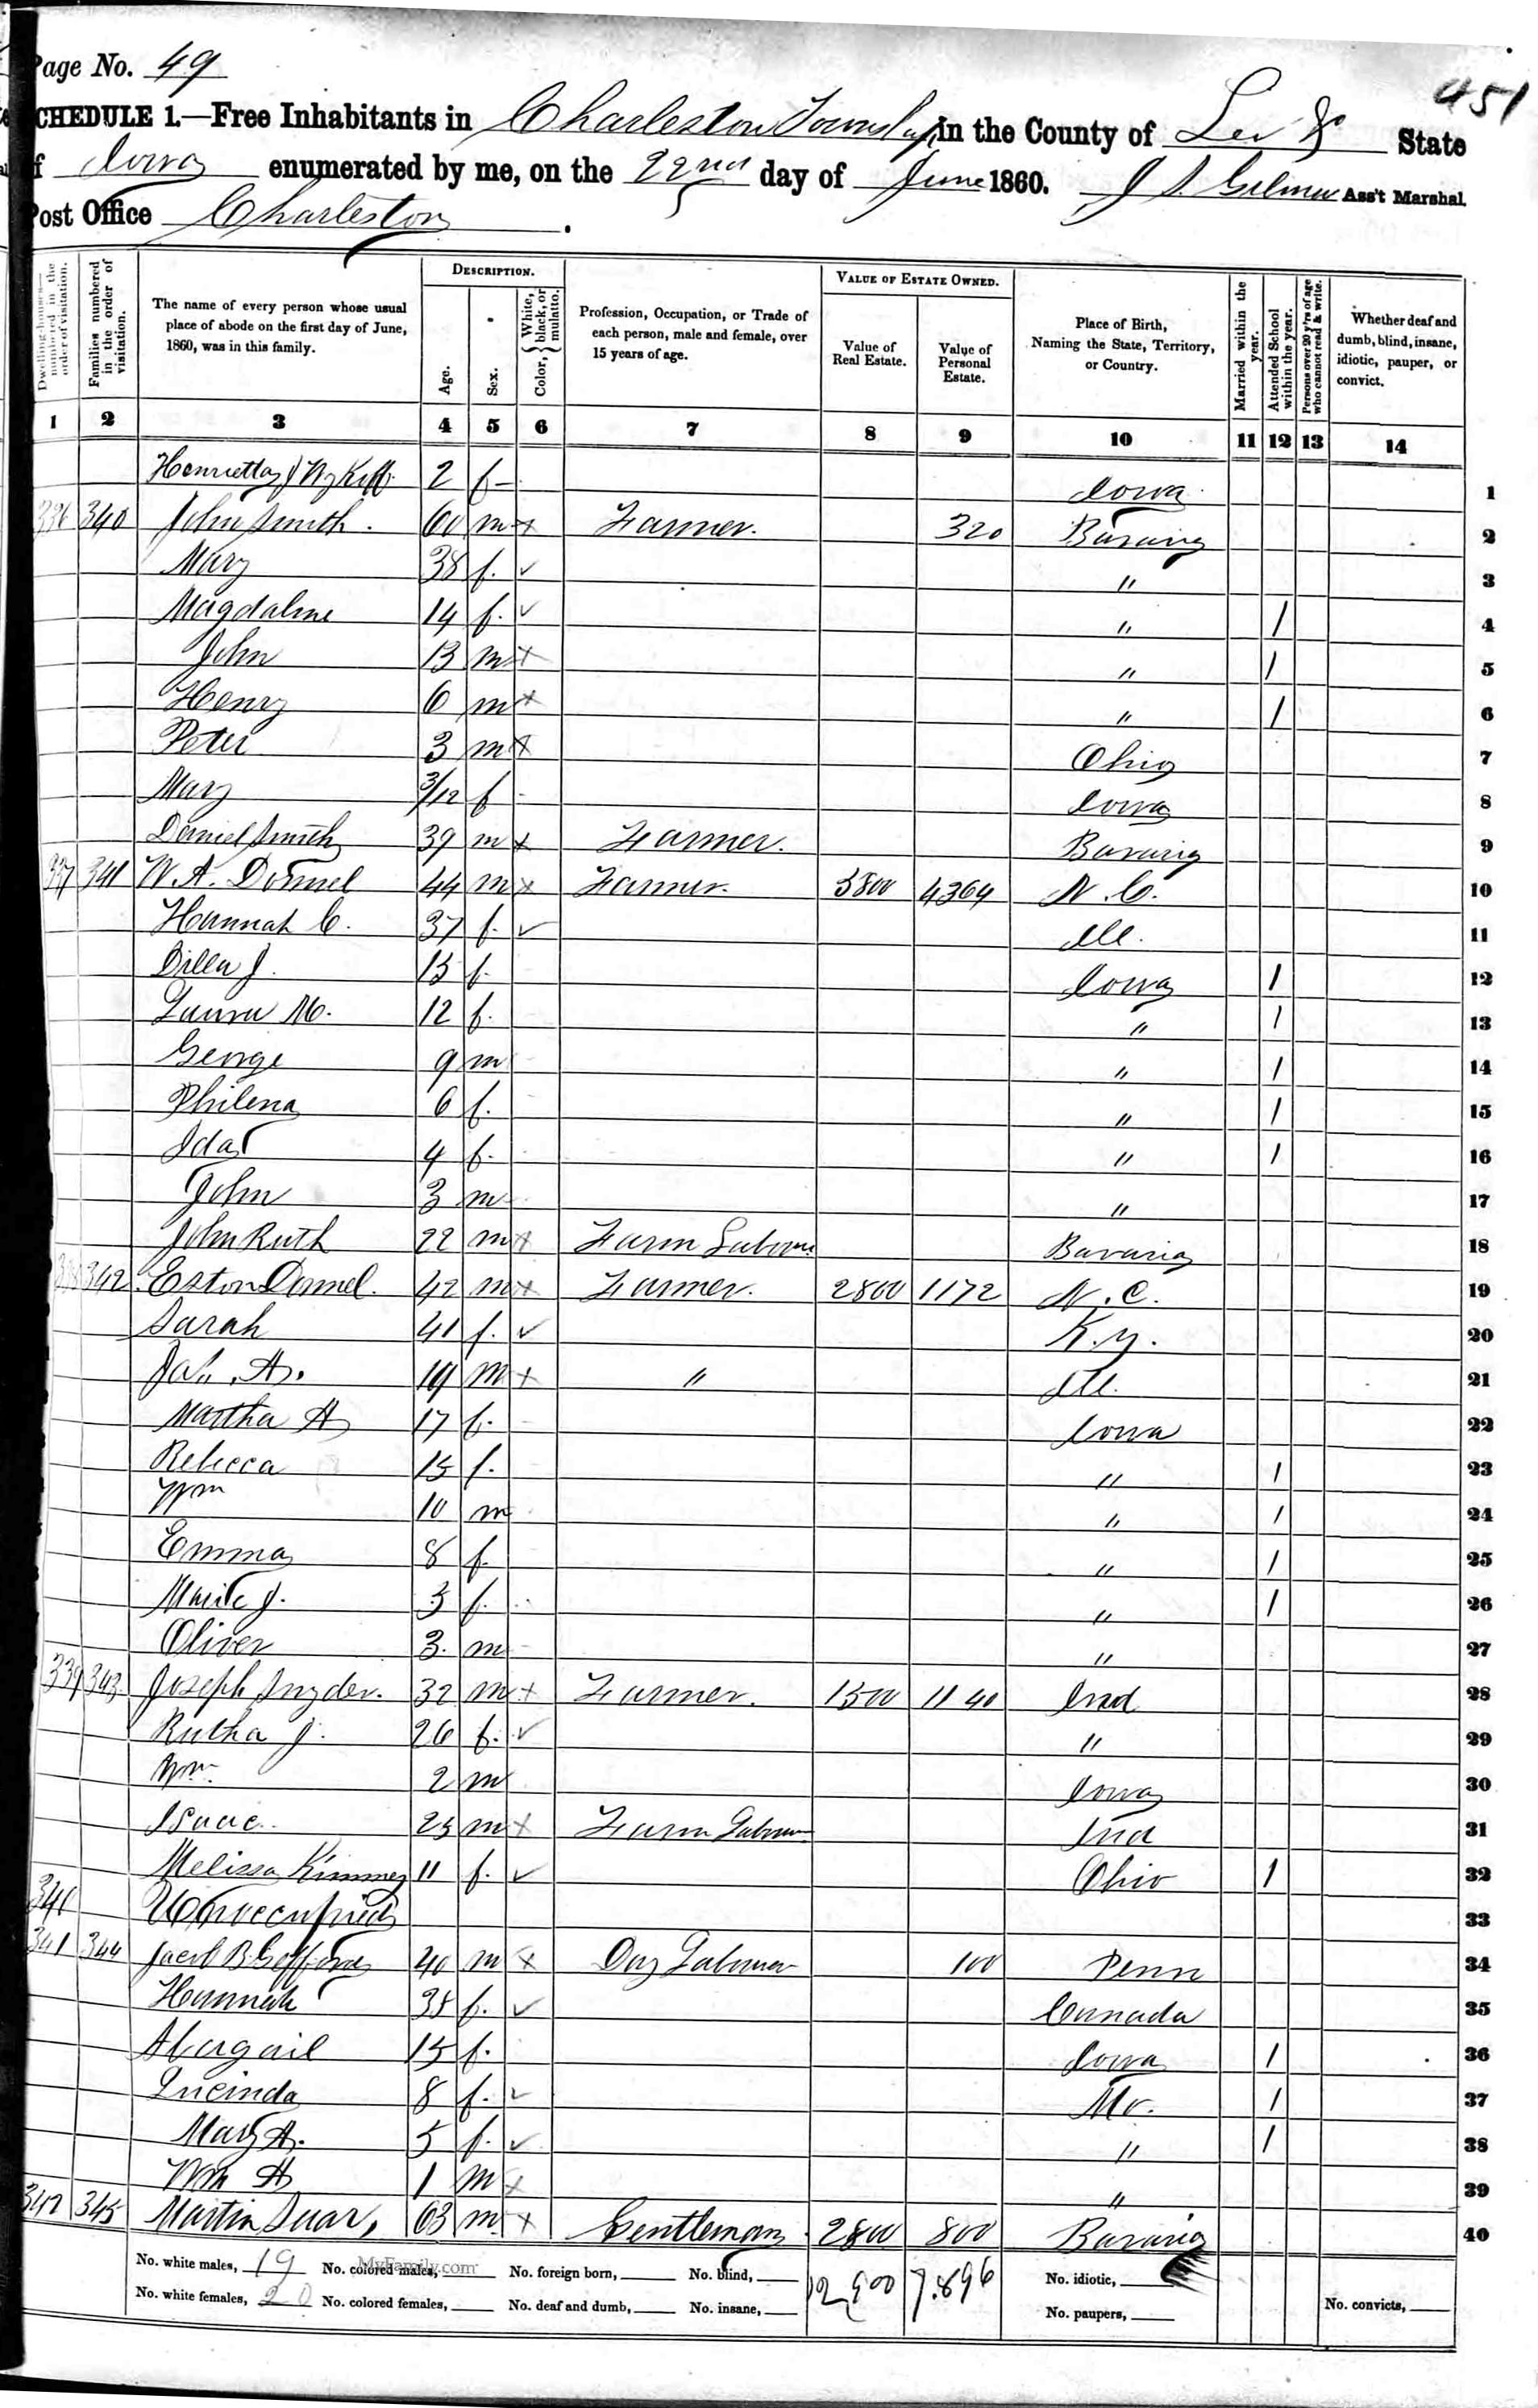 Page No. 49
451
SCHEDULE 1.—Free Inhabitants in Charleston Township in the County of Lee Co State
of Iowa enumerated by me, on the 22nd day of June 1860. Ass't Marshal.
Post Office Charleston.
Dwelling-houses—numbered in the order of visitation.
Families numbered in the order of visitation.
The name of every person whose usual place of abode on the first day of June, 1860, was in this family.
DESCRIPTION.
Age.
Sex.
Color, { White, black, or mulatto.
Profession, Occupation, or Trade of each person, male and female, over 15 years of age.
VALUE OF ESTATE OWNED.
Value of Real Estate.
Value of Personal Estate.
Place of Birth, Naming the State, Territory, or Country.
Married within the year.
Attended School within the year.
Persons over 20 y'rs of age who cannot read & write.
Whether deaf and dumb, blind, insane, idiotic, pauper, or convict.
1 2 3 4 5 6 7 8 9 10 11 12 13 14
Henrietta J 2 f Iowa 1
336 340 John Smith. 60 m x Farmer. 320 Bavaria 2
Mary 38 f. ✓ " 3
Magdaline 14 f. ✓ " / 4
John 13 m x " / 5
Henry 6 m x " / 6
Peter 3 m x Ohio 7
Mary 3/12 f Iowa 8
Daniel Smith 39 m x Farmer. Bavaria 9
337 341 W. A. Donnel 44 m x Farmer. 3800 4364 N. C. 10
Hannah C. 37 f. ✓ Ill. 11
Dilla J. 15 f. Iowa / 12
Laura M. 12 f. " / 13
George 9 m " / 14
Philena 6 f. " / 15
Ida 4 f. " / 16
John 3 m " 17
John Ruth 22 m x Farm Laborer Bavaria 18
338 342 Eston Donnel. 42 m x Farmer. 2800 1172 N. C. 19
Sarah 41 f. ✓ K.y. 20
A. 19 m x " Ill. 21
Martha A 17 f. Iowa 22
Rebecca 15 f. " / 23
Wm 10 m " / 24
Emma 8 f. " / 25
J. f. " / 26
Oliver 3. m " 27
339 343 Joseph Snyder. 32 m x Farmer. 1500 1140 Ind 28
Rutha J. 26 f. ✓ " 29
Wm. 2 m Iowa 30
Isaac. 25 m x Farm Laborer Ind 31
Melissa Kimmey 11 f. ✓ Ohio / 32
340 Unoccupied 33
341 344 Jacob B. Gifford 40 m x Day Laborer 100 Penn 34
Hannah 38 f. ✓ Canada 35
Abagail 15 f. Iowa / 36
Lucinda 8 f. ✓ Mo. / 37
Mary A. 5 f. ✓ " / 38
Wm A 1 m x " 39
342 345 Martin 63 m. x Gentleman 2800 800 Bavaria 40
No. white males, 19 No. colored males, No. foreign born, No. blind, 7.896 No. idiotic,
MyFamily.com
No. white females, 20 No. colored females, No. deaf and dumb, No. insane, No. paupers, No. convicts,